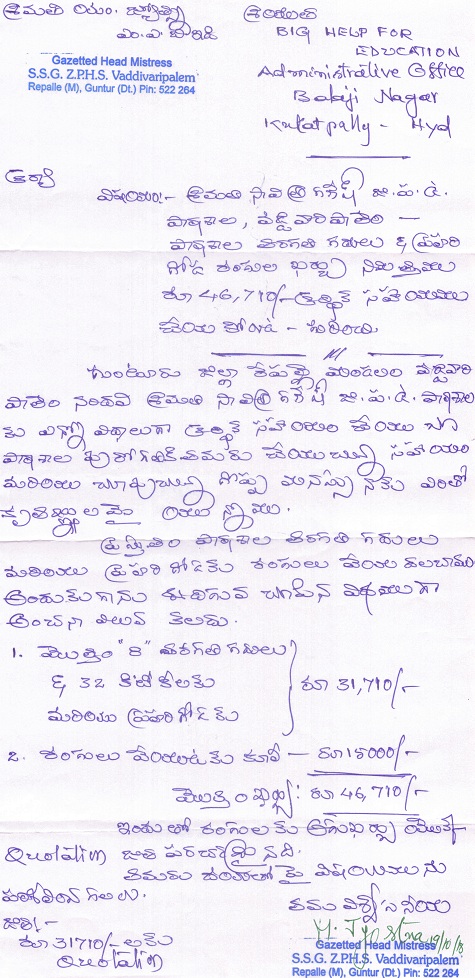 శ్రీమతి యం. జ్యోత్స్నా
ఎం.ఎ. బి.ఇడి
Gazetted Head Mistress
S.S.G. Z.P.H.S. Vaddivaripalem
Repalle (M), Guntur (Dt.) Pin: 522 264
శ్రీయుత
BIG HELP FOR
EDUCATION
Administrative Office
Babaji Nagar
Kukatpally - Hyd
ఆర్యా
విషయం:- శ్రీమతి సావిత్రి గణేష్ జి.ప.ఉ.
పాఠశాల, వడ్డివారిపాలెం -
పాఠశాల తరగతి గదులు & ప్రహరి
గోడ రంగుల ఖర్చు నిమిత్తము
రూ 46,710/- ఆర్థిక సహాయము
చేయు కోరుట - గురించి.
గుంటూరు జిల్లా రేపల్లె మండలం వడ్డివారి
పాలెం నందలి శ్రీమతి సావిత్రి గణేష్ జి.ప.ఉ. పాఠశాల
కు ఎన్నో విధాలుగా ఆర్థిక సహాయం చేయుచూ
పాఠశాల పురోగతికి తమరు చేయుచున్న సహాయం
మరియు చూపుచున్న గొప్ప మనస్సునకు ఎంతో
కృతజ్ఞులమై యున్నాము.
ప్రస్తుతం పాఠశాల తరగతి గదులు
మరియు ప్రహరి గోడకు రంగులు వేయ తలచాము
అందుకుగాను ఈ దిగువ చూపిన విధముగా
అంచనా విలువ కలదు.
1. మొత్తం "8" తరగతి గదులు
& 32 కిటికీలకు
మరియు ప్రహరీగోడకు
రూ 31,710/-
2. రంగులు వేయుటకు కూలీ - రూ 15000/-
మొత్తం ఖర్చు: రూ 46,710/-
ఇందులో రంగులకు అగు ఖర్చు యొక్క
Quotation జత పరచడమైనది.
తమరు దయతో పై విషయమును
పరిశీలించగలరు.
తమ విశ్వసనీయ
జత:-
రూ 31710/- లకు
Quotation
M. Jyostna 19/10/18
Gazetted Head Mistress
S.S.G. Z.P.H.S. Vaddivaripalem
Repalle (M), Guntur (Dt.) Pin: 522 264